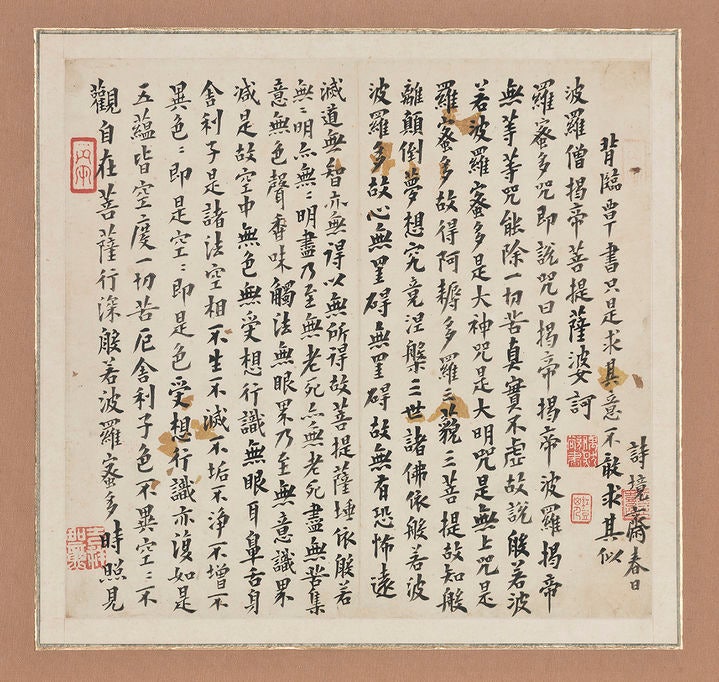 觀自在菩薩行深般若波羅蜜多時照見
五蘊皆空度一切苦厄舍利子色不異空〻不
異色〻即是空〻即是色受想行識亦復如是
舍利子是諸法空相不生不滅不垢不淨不增不
減是故空中無色無受想行識無眼耳鼻舌身
意無色聲香味觸法無眼界乃至無意識界
無〻明亦無〻明盡乃至無老死亦無老死盡無苦集
滅道無智亦無得以無所得故菩提薩埵依般若
波羅多故心無罣碍無罣碍故無有恐怖遠
離顛倒夢想究竟涅槃三世諸佛依般若波
羅蜜多故得阿耨多羅三藐三菩提故知般
若波羅蜜多是大神咒是大明咒是無上咒是
無等等咒能除一切苦真實不虛故說般若波
羅蜜多咒即說咒曰揭帝揭帝波羅揭帝
波羅僧揭帝菩提薩婆訶
背臨書只是求其意不敢求其似
詩境齋春日